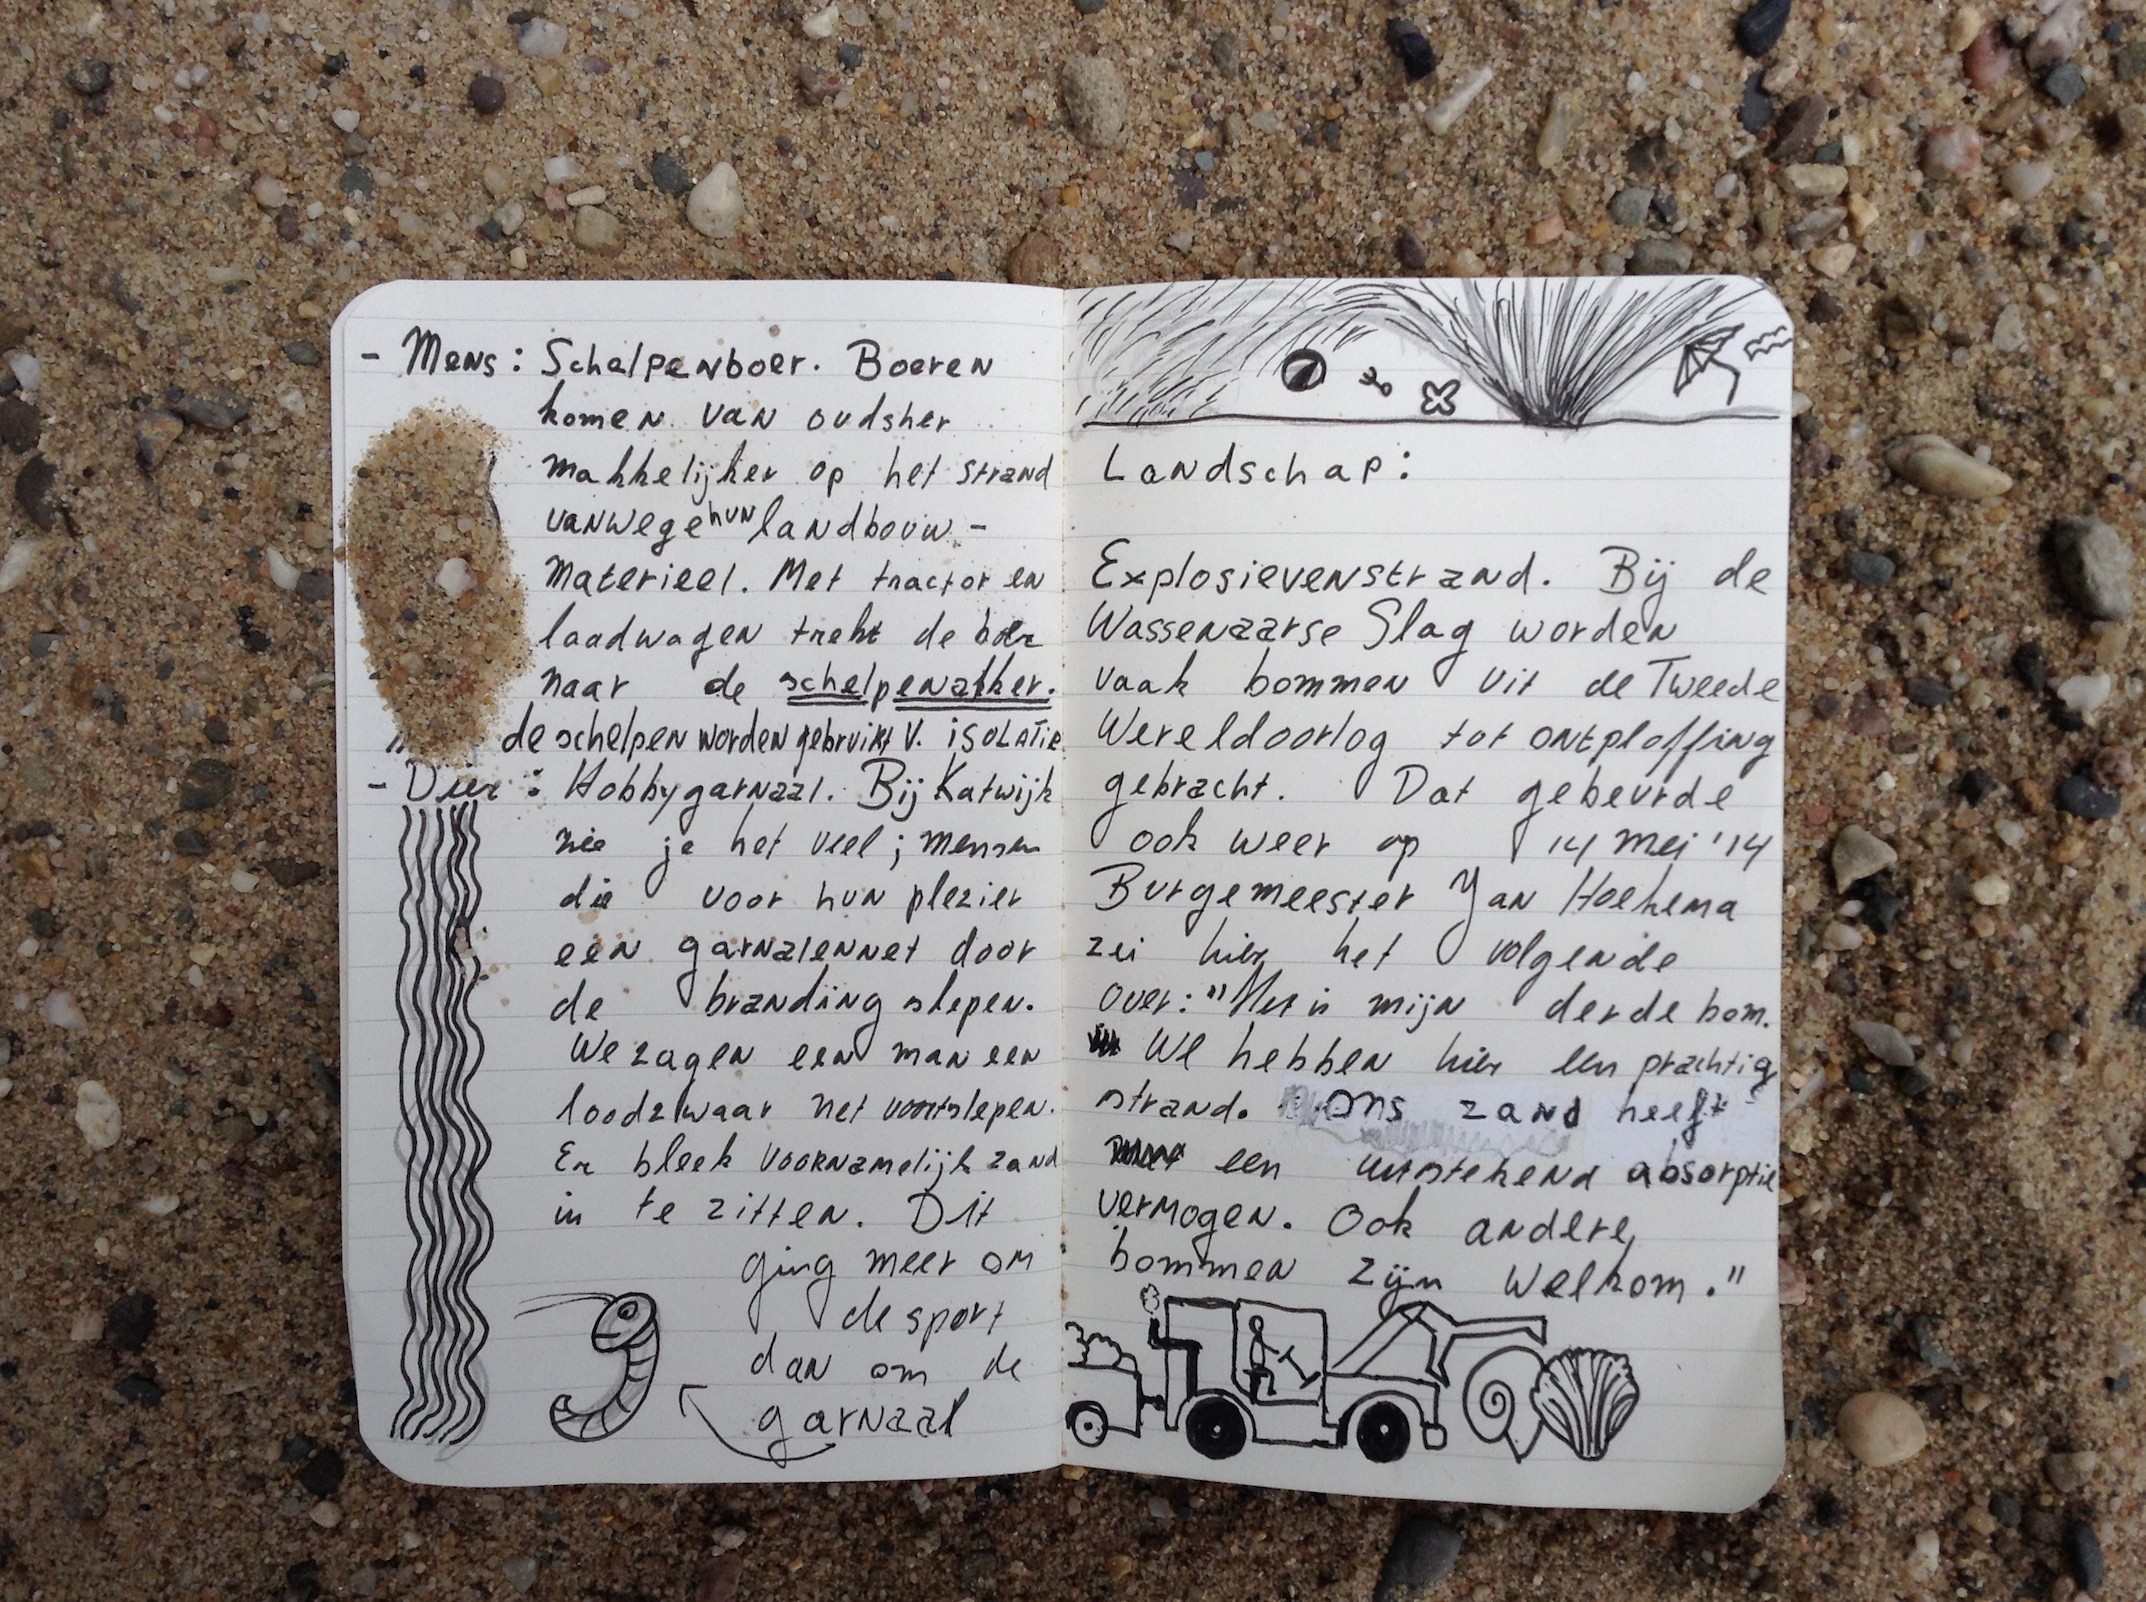 - Mens: Schelpenboer. Boeren
komen van oudsher
makkelijker op het strand
vanwege hun landbouw-
materieel. Met tractor en
laadwagen trekt de boer
naar de schelpenakker.
de schelpen worden gebruikt v. isolatie
- Dier: Hobbygarnaal. Bij Katwijk
zie je het veel; mensen
die voor hun plezier
een garnalennet door
de branding slepen.
We zagen een man een
loodzwaar net voortslepen.
Er bleek voornamelijk zand
in te zitten. Dit
ging meer om
de sport
dan om de
garnaal
Landschap:
Explosievenstrand. Bij de
Wassenaarse Slag worden
vaak bommen uit de Tweede
Wereldoorlog tot ontploffing
gebracht. Dat gebeurde
ook weer op 14 mei '14
Burgemeester Jan Hoekema
zei hier het volgende
over: "Het is mijn derde bom.
We hebben hier een prachtig
strand. Ons zand heeft
een uitstekend absorptie
vermogen. Ook andere
bommen zijn welkom."